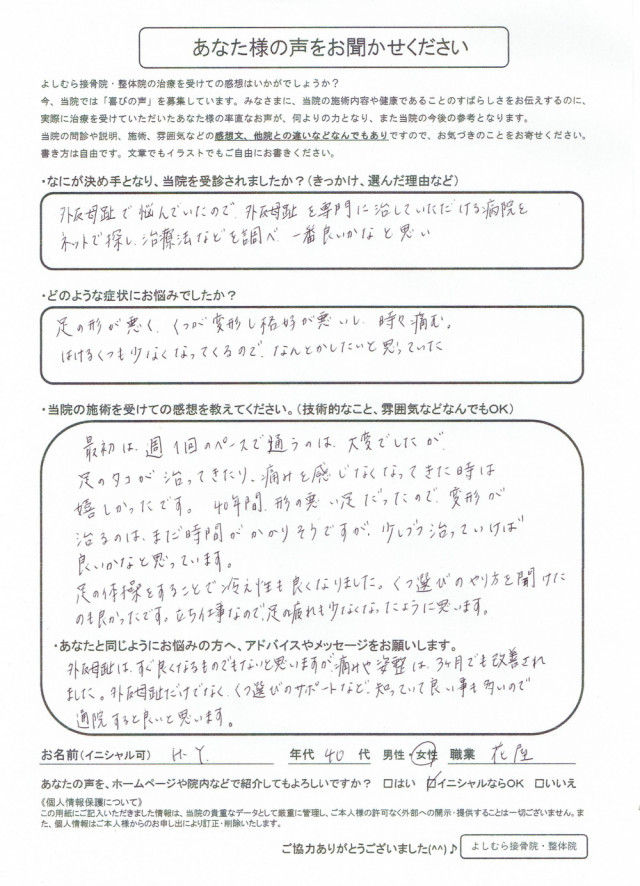 あなた様の声をお聞かせください
よしむら接骨院・整体院の治療を受けての感想はいかがでしょうか?
今、当院では「喜びの声」を募集しています。みなさまに、当院の施術内容や健康であることのすばらしさをお伝えするのに、
実際に治療を受けていただいたあなた様の率直なお声が、何よりの力となり、また当院の今後の参考となります。
当院の問診や説明、施術、雰囲気などの感想文、他院との違いなどなんでもありですので、お気づきのことをお寄せください。
書き方は自由です。文章でもイラストでもご自由にお書きください。
・なにが決め手となり、当院を受診されましたか?(きっかけ、選んだ理由など)
外反母趾で悩んでいたので、外反母趾を専門に治していただける病院を
ネットで探し、治療法などを調べ、一番良いかなと思い
・どのような症状にお悩みでしたか?
足の形が悪く、くつが変形し格好が悪いし、時々痛む。
はけるくつも少なくなってくるので、なんとかしたいと思っていた
・当院の施術を受けての感想を教えてください。(技術的なこと、雰囲気などなんでもOK)
最初は、週1回のペースで通うのは、大変でしたが、
足のタコが治ってきたり、痛みを感じなくなってきた時は
嬉しかったです。40年間、形の悪い足だったので、変形が
治るのは、まだ時間がかかりそうですが、少しづつ治っていけば
良いかなと思っています。
足の体操をすることで冷え性も良くなりました。くつ選びのやり方を聞けた
のも良かったです。立ち仕事なので、足の疲れも少なくなったように思います。
・あなたと同じようにお悩みの方へ、アドバイスやメッセージをお願いします。
外反母趾は、すぐ良くなるものでもないと思いますが、痛みや姿整は、3ヶ月でも改善され
ました。外反母趾だけでなく、くつ選びのサポートなど、知っていて良い事も多いので
通院すると良いと思います。
お名前(イニシャル可) H-Y. 年代 40 代 男性・女性 職業 花屋
あなたの声を、ホームページや院内などで紹介してもよろしいですか? □はい ☑イニシャルならOK □いいえ
《個人情報保護について》
この用紙にご記入いただきました情報は、当院の貴重なデータとして厳重に管理し、ご本人様の許可なく外部への開示・提供することは一切ございません。ま
た、個人情報はご本人様からのお申し出により訂正・削除いたします。
ご協力ありがとうございました(^^)♪ よしむら接骨院・整体院